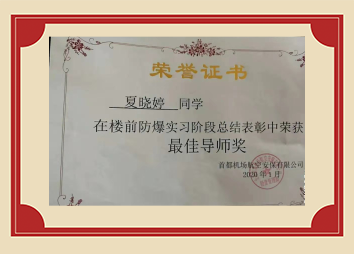 荣誉证书
夏晓婷 同学
在楼前防爆实习阶段总结表彰中荣获
最佳导师奖
首都机场航空安保有限公司
2020 年 1 月